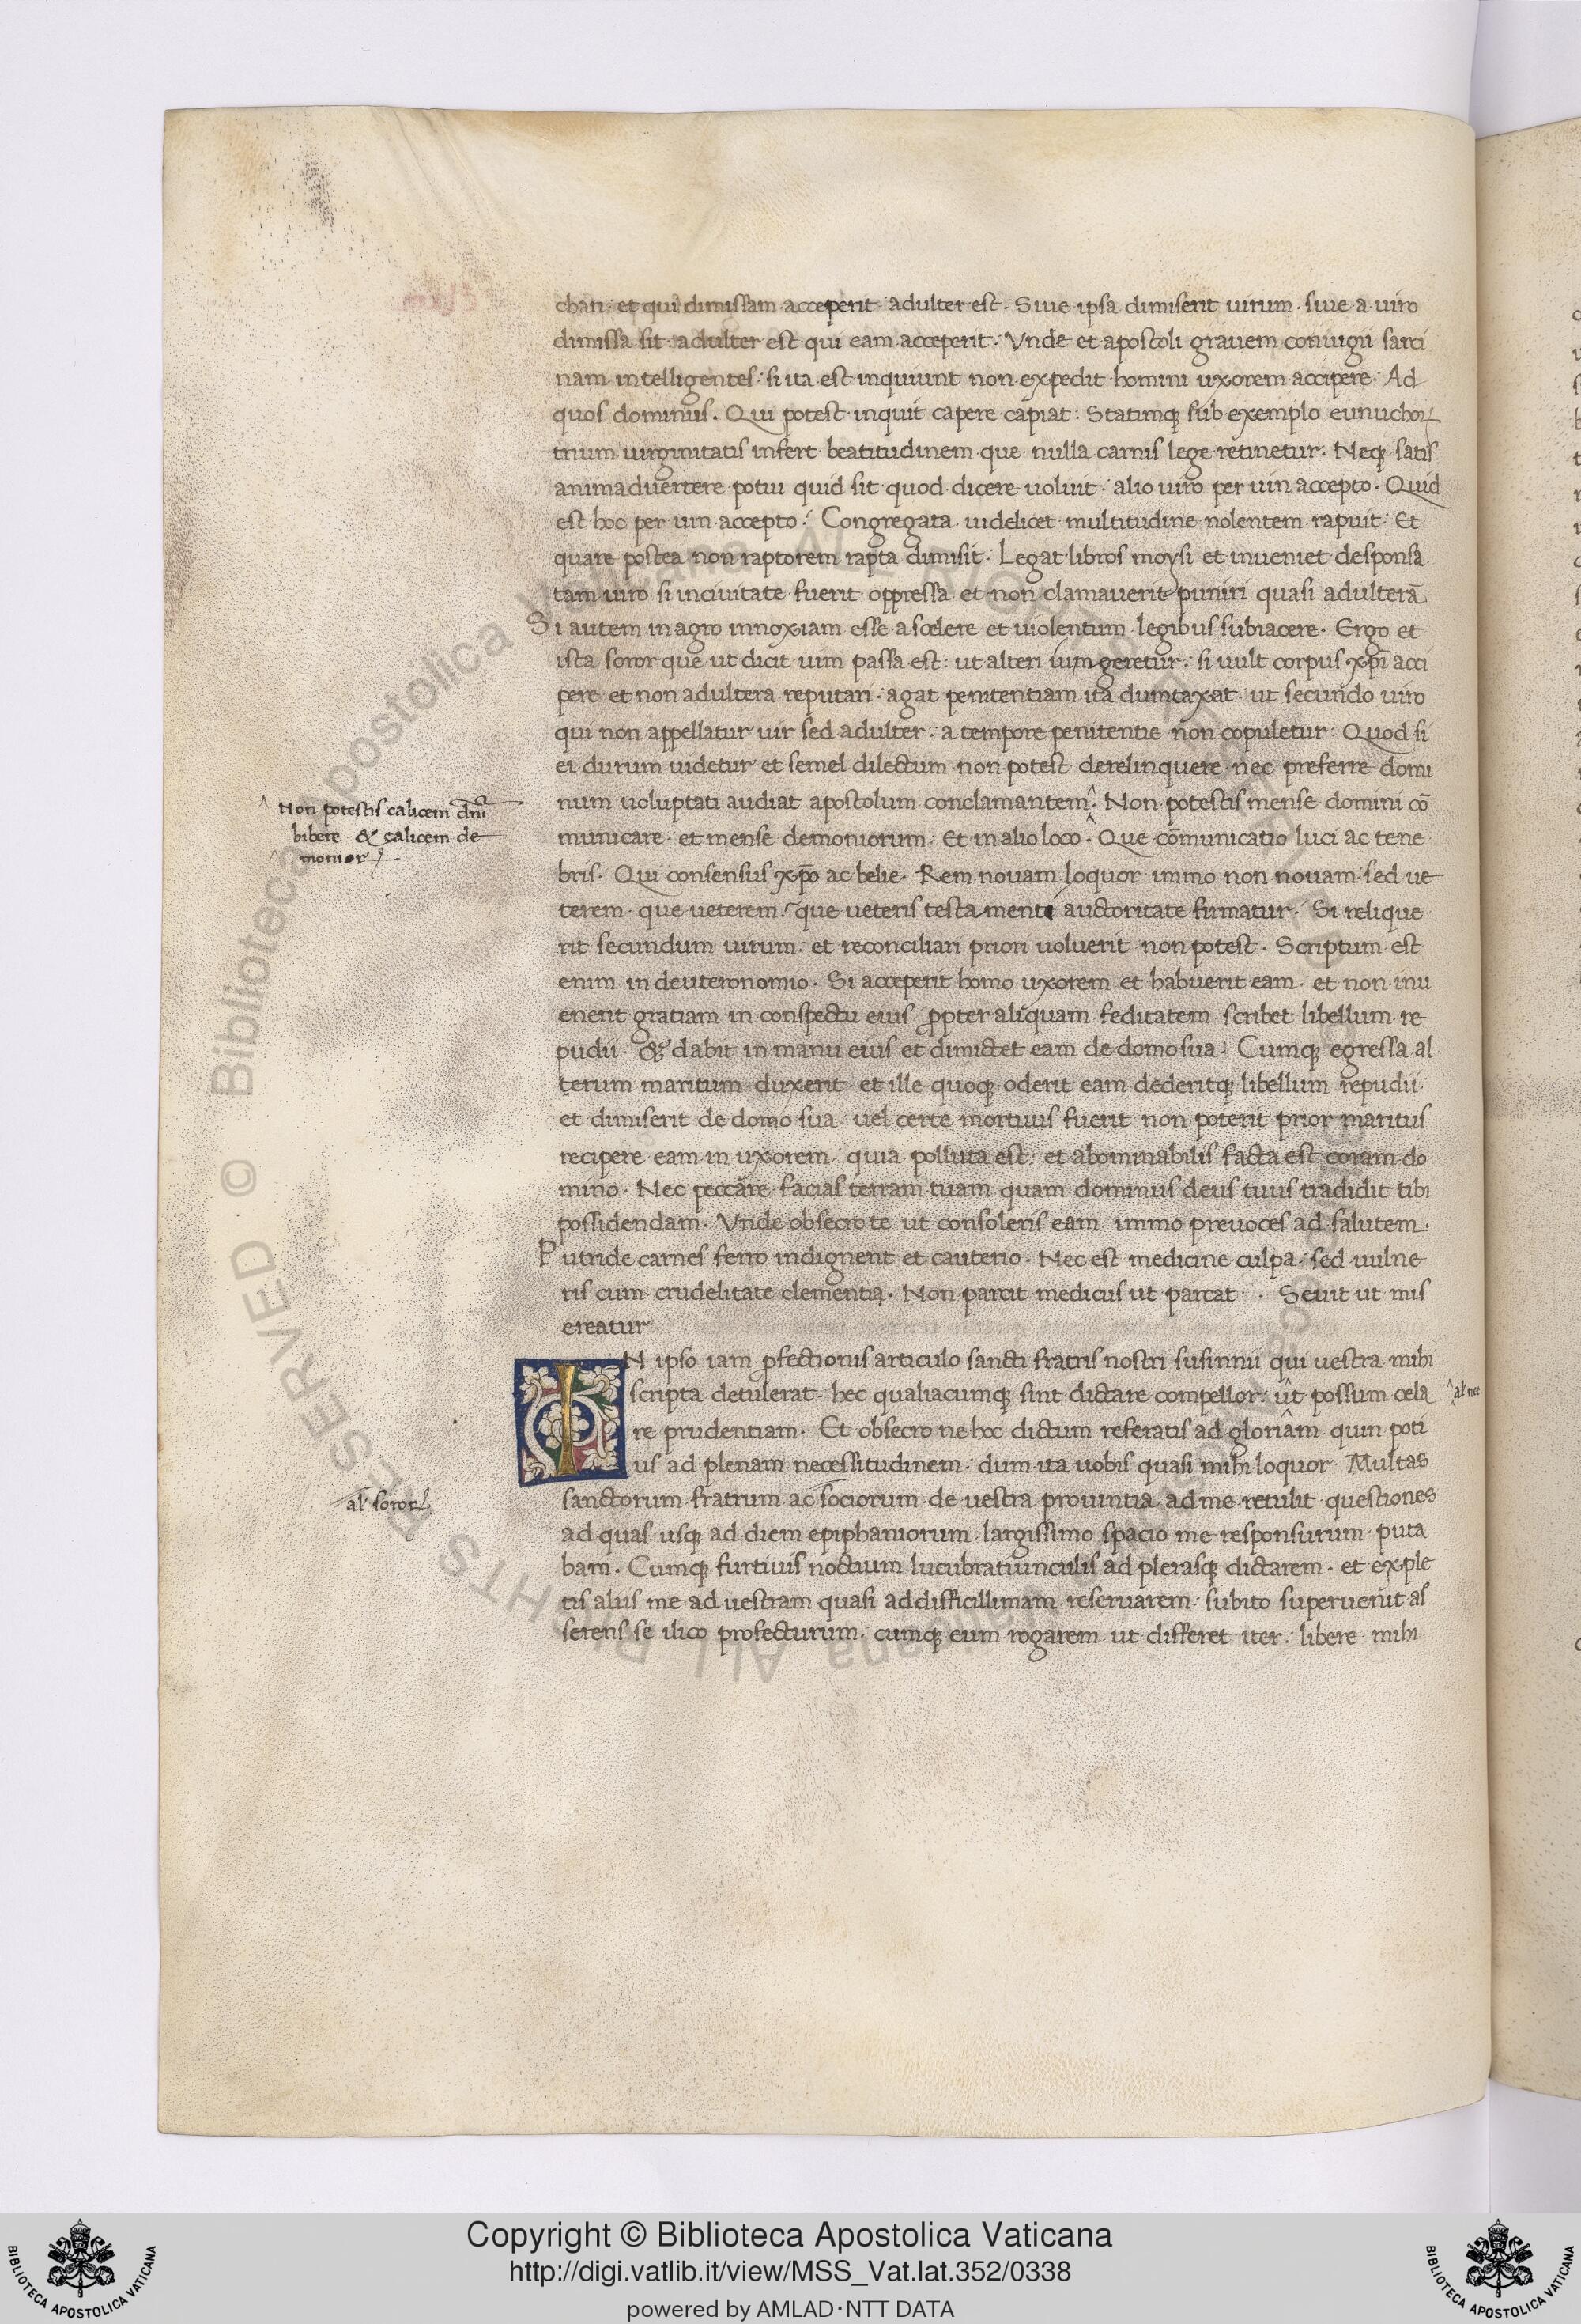 chari. et qui dimissam acceperit adulter est. Siue ipsa dimiserit uirum. siue a uiro
dimissa sit: adulter est qui eam acceperit. Vnde et apostoli grauem coniugii sarci
nam intelligentes: si ita est inquiunt non expedit homini uxorem accipere. Ad
quos dominus. Qui potest inquit capere capiat: Statimqꝫ sub exemplo eunuchoꝝ
trium uirginitatis infert beatitudinem que nulla carnis lege retinetur. Neqꝫ satis
animaduertere potui quid sit quod dicere uoluit. alio uiro per uin accepto. Quid
est hoc per uim accepto? Congregata uidelicet multitudine nolentem rapuit. Et
quare postea non raptorem rapta dimisit. Legat libros moysi et inueniet desponsa
tam uiro si inciuitate fuerit oppressa et non clamauerit puniri quasi adulterā
Si autem in agro innoxiam esse a scelere et uiolentum legibus subiacere. Ergo et
ista soror que ut dicit uim passa est: ut alteri iungeretur. si uult corpus xp̄i acci
pere et non adultera reputari. agat penitentiam ita dumtaxat. ut secundo uiro
qui non appellatur uir sed adulter. a tempore penitentie non copuletur: Quod si
ei durum uidetur et semel dilectum non potest derelinquere nec preferre domi
num uoluptati audiat apostolum conclamantem. Non potestis mense domini cō
^ Non potestis calicem dn̄i
bibere & calicem de
monioꝝ
municare. et mense demoniorum. Et in alio loco. Que cōmunicatio luci ac tene
bris. Qui consensus xp̄o ac belie. Rem nouam loquor immo non nouam sed ue
terem. que ueterem? que ueteris testamenti auctoritate firmatur. Si relique
rit secundum uirum. et reconciliari priori uoluerit non potest. Scriptum est
enim in deuteronomio. Si acceperit homo uxorem et habuerit eam. et non inu
enerit gratiam in conspectu eius propter aliquam feditatem scribet libellum re
pudii. & dabit in manu eius et dimictet eam de domo sua. Cumqꝫ egressa al
terum maritum duxerit. et ille quoqꝫ oderit eam dederitqꝫ libellum repudii
et dimiserit de domo sua uel certe mortuus fuerit non poterit prior maritus
recipere eam in uxorem. quia polluta est. et abominabilis facta est coram do
mino. Nec peccare facias terram tuam quam dominus deus tuus tradidit tibi
possidendam. Vnde obsecro te ut consoleris eam immo preuoces ad salutem.
Putride carnes ferro indignent et cauterio. Nec est medicine culpa. sed uulne
ris cum crudelitate clementia. Non parcit medicus ut parcat. Seuit ut mis
ereatur
IN ipso iam ꝓfectionis articulo sancti fratris nostri susinnii qui uestra mihi
scripta detulerat. hec qualiacumqꝫ sint dictare compellor. ut possum cela
^ al' nec
re prudentiam. Et obsecro ne hoc dictum referatis ad gloriam quin poti
us ad plenam necessitudinem. dum ita uobis quasi mihi loquor. Multas
sanctorum fratrum ac sociorum de uestra prouintia ad me retulit questiones
al' soroꝝ
ad quas usqꝫ ad diem epiphaniorum largissimo spacio me responsurum puta
bam. Cumqꝫ furtiuis noctium lucubratiunculis ad plerasqꝫ dictarem. et exple
tis aliis me ad uestram quasi ad difficillimam reseruarem subito superuenit as
serens se ilico profecturum. cumqꝫ eum rogarem ut differet iter. libere mihi
Copyright © Biblioteca Apostolica Vaticana
http://digi.vatlib.it/view/MSS_Vat.lat.352/0338
powered by AMLAD·NTT DATA
BIBLIOTECA APOSTOLICA VATICANA
BIBLIOTECA APOSTOLICA VATICANA